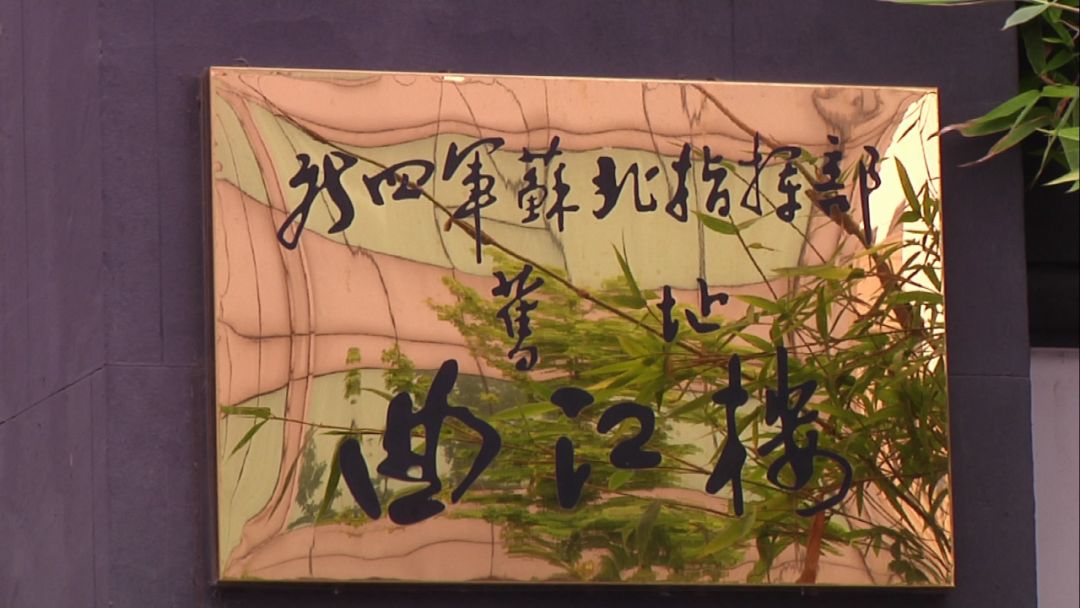 新四軍蘇北指揮部
舊址
曲江楼